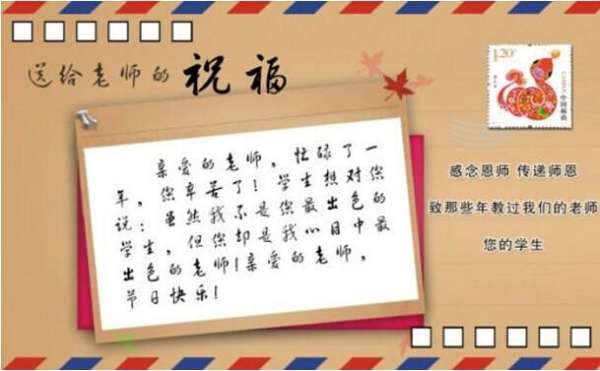 送给老师的祝福
亲爱的老师，忙碌了一
年，您辛苦了！学生想对您
说：虽然我不是您最出色的
学生，但您却是我心目中最
出色的老师！亲爱的老师，
节日快乐！
20
中国邮政
感念恩师 传递师恩
致那些年教过我们的老师
您的学生